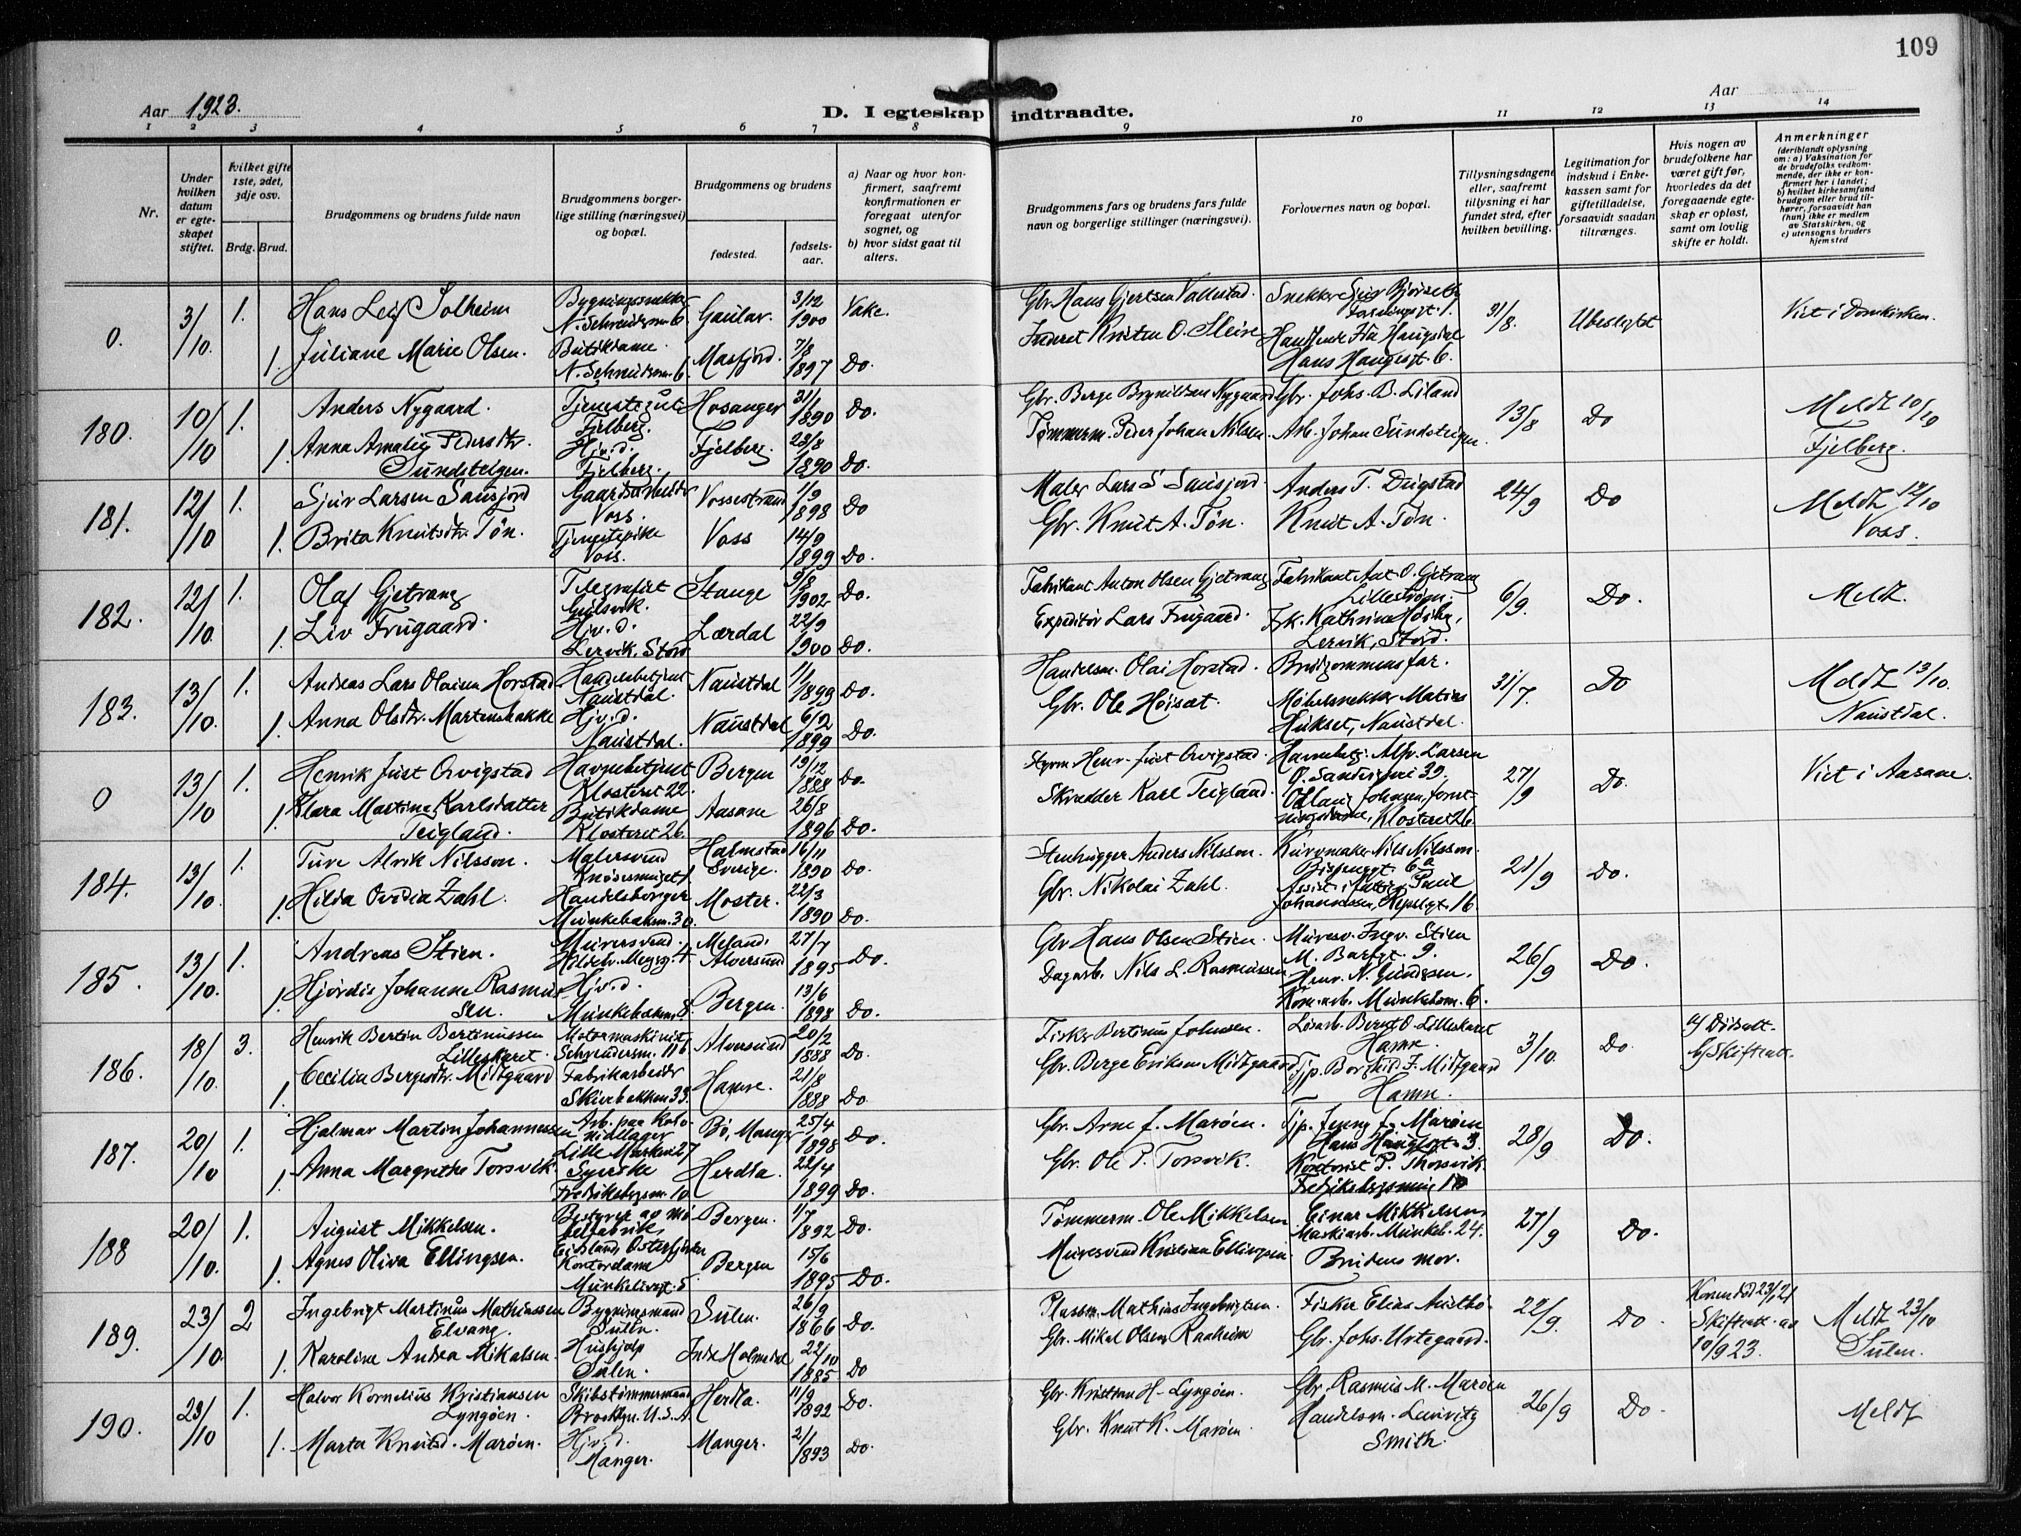 109
Aar 1923.
D. I egteskap indtraadte.
Aar
1 2 3 4 5 6 7 8 9 10 11 12 13 14
Nr.
Under hvilken datum er egteskapet stiftet.
Hvilket gifte 1ste, 2det, 3dje osv.
Brdg. Brud.
Brudgommens og brudens fulde navn
Brudgommens borgerlige stilling (næringsvei) og bopæl.
Brudgommens og brudens
fødested.
fødselsaar.
a) Naar og hvor konfirmert, saafremt konfirmationen er foregaat utenfor sognet, og
b) hvor sidst gaat til alters.
Brudgommens fars og brudens fars fulde navn og borgerlige stillinger (næringsvei).
Forlovernes navn og bopæl.
Tillysningsdagene eller, saafremt tillysning ei har fundet sted, efter hvilken bevilling.
Legitimation for indskud i Enkekassen samt for giftetilladelse, forsaavidt saadan tiltrænges.
Hvis nogen av brudefolkene har været gift før, hvorledes da det foregaaende egteskap er opløst, samt om lovlig skifte er holdt.
Anmerkninger (deriblandt oplysning om: a) Vaksination for de brudefolks vedkommende, der ikke er konfirmert her i landet; b) hvilket kirkesamfund brudgom eller brud tilhører, forsaavidt han (hun) ikke er medlem av Statskirken, og c) utensogns bruders hjemsted
0. 3/10. 1. Hans Leif Solheim Gaular 3/12 1900 31/8. Ubeslegtet Viet i Domkirken.
1. Juliane Marie Olsen. Butikdame Masfjord. 1897 Do.
180. 10/10 1. Anders Nygaard. Hosanger 31/1 1890 Do. Gbr. Berge Brynildsen Nygaard Gbr. Johs. B. Liland 13/8 Do Meldt 10/10
1. Anna Amalie Pedersdtr. Sundsteigen. Hjv.d. Fjelberg. Fjelberg. 23/8 1890 Do. Tømmerm. Peder Johan Nilsen. Arb. Johan Sundsteigen. Fjelberg.
181. 12/10 1. Sjur Larsen Voss. Vossestrand 1898 Do Maler Lars S. Anders T. 24/9 Do Meldt 12/10
1. Brita Knutsdtr. Tøn. Tjenestepike Voss. Voss 14/9 1899 Do. Gbr. Knut A. Tøn. Knut A. Tøn. Voss.
182. 12/10. 1. Olaf Gjetrang Telegrafist Gulsvik. Stange 9/8 1902 Do. Fabrikant Anton Olsen Gjetrang Fabrikant Ant. O. Gjetrang Lillestrøm. 6/9. Do. Meldt.
1. Liv Frugaard. Hjv.d. Lervik. Stord Lærdal 22/9 1900 Do. Expeditør Lars Frugaard. Frk. Kathrine Høiby, Lervik, Stord.
183. 13/10. 1. Andreas Lars Olaisen Horstad Handelsbetjent Naustdal. Naustdal 1/1 1899 Do. Handelsm. Olai Horstad. Brudgommens far. 31/7. Do Meldt 13/10.
1. Anna Olsdtr. Martensbakke Hjv.d. Naustdal. Naustdal 6/2 1899 Do. Gbr. Ole Høisæt. Møbelsnekker Matias Hukset, Naustdal. Naustdal.
0 13/10 1. Henrik Just Orvigstad Havnebetjent Klosteret 22. Bergen 19/12 1888 Do. Styrm Henr. Just Orvigstad. Havnebetj. Alfr. Larsen Ø. Sandviksvei 39. 27/9 Do. Viet i Aasane.
1. Klara Martine Karlsdatter Teigland. Butikdame Klosteret 26. Aasane 26/8 1896 Do. Skrædder Karl Teigland. Johnsen, Klosteret 26.
184. 13/10. 1. Ture Alrik Nilsson. Malersvend Halmstad Sverige. 16/11 1890 Do. Stenhugger Anders Nilsson. Kurvmaker Nils Nilsson. 21/9 Do.
1. Hilda Ovidia Zahl. Munkebakm. 30. Moster. 22/3 1890 Do. Gbr. Nikolai Zahl. Paul Johannessen, 16.
185. 13/10. 1. Andreas Stien. Murersvend. Meland. Alversund 27/7 1895 Do. Gbr Hans Olsen Stien. Muresv. Ingv. Stien 9. 26/9 Do.
1. Hjørdis Johanne Rasmussen. Hjv.d. Munkebakm. 8. Bergen. 13/6 1898 Do. Dagarb. Nils L. Rasmussen Henr. N. Gundersen, Munkebm. 6.
186. 18/10. 3. Henrik Bertin Bertinussen Lilleskaret. Motormaskinist Alversund 20/2 1888 Do. Fisker Bertinus Johnsen. Løsarb. Bernt O. Lilleskaret Hamre. 3/10. Do. a) Dødsatt. b) Skifteatt.
1. Cecilia Bergesdtr. Midtgaard Fabrikarbeidr Skivebakken 33. Hamre. 21/8 1888 Do. Gbr. Berge Eriksen Midtgaard Tjp. Borghild J. Midtgaard Hamre.
187. 20/10 1. Hjalmar Martin Johannessen Lille Marken 27 Bø, Manger 25/4 1898 Do. Gbr. Arne J. Marøen. Tjp. Jenny J. Marøen Hans Haugesgt. 3. 28/9 Do.
1. Anna Margrethe Torsvik. Syerske Fredriksbergsm. 10 Herdla 22/4 1899 Do. Gbr. Ole P. Torsvik. Kontorist P. Thorsvik. Fredriksbergsmug 10
188 20/10. 1. August Mikkelsen. Bestyrer av møbelfabrik, Bergen. 1/7 1892 Do. Tømmerm. Ole Mikkelsen Einar Mikkelsen, Maskinarb. Munkeb. 24. 27/9 Do.
1. Agnes Oliva Ellingsen. Kontordame Munkelivsgt. 5. Bergen 15/6 1895 Do. Muresvend Kristian Ellingsen Brudens mor.
189. 23/10. 2 Ingebrigt Martinus Mathiassen Elvang. Bygningsmand Sulen. Sulen. 26/9 1866 Do. Plassm. Mathias Ingebrigtsen. Fisker Elias 22/9. Do. Konen død 23/2 21 Skifteatt. av 10/9 23. Meldt 23/10
1. Karoline Andrea Mikalsen. Hushjelp Sulen. Indre Holmedal 22/10 1885 Do Gbr. Mikal Olsen Raaheim Gbr. Johs. Urtegaard. Sulen.
190. 23/10 1. Halvor Kornelius Kristiansen Lyngøen. Skibstømmermand Brooklyn. U.S.A. Herdla. 11/9 1892 Do. Gbr. Kristian H. Lyngøen. Gbr. Rasmus M. Marøen 26/9 Do. Meldt
1. Marta Knutsd. Marøen. Hjv.d. Manger. Manger. 2/1 1893 Do. Gbr. Knut K. Marøen Handelsm. Lauritz Smith.